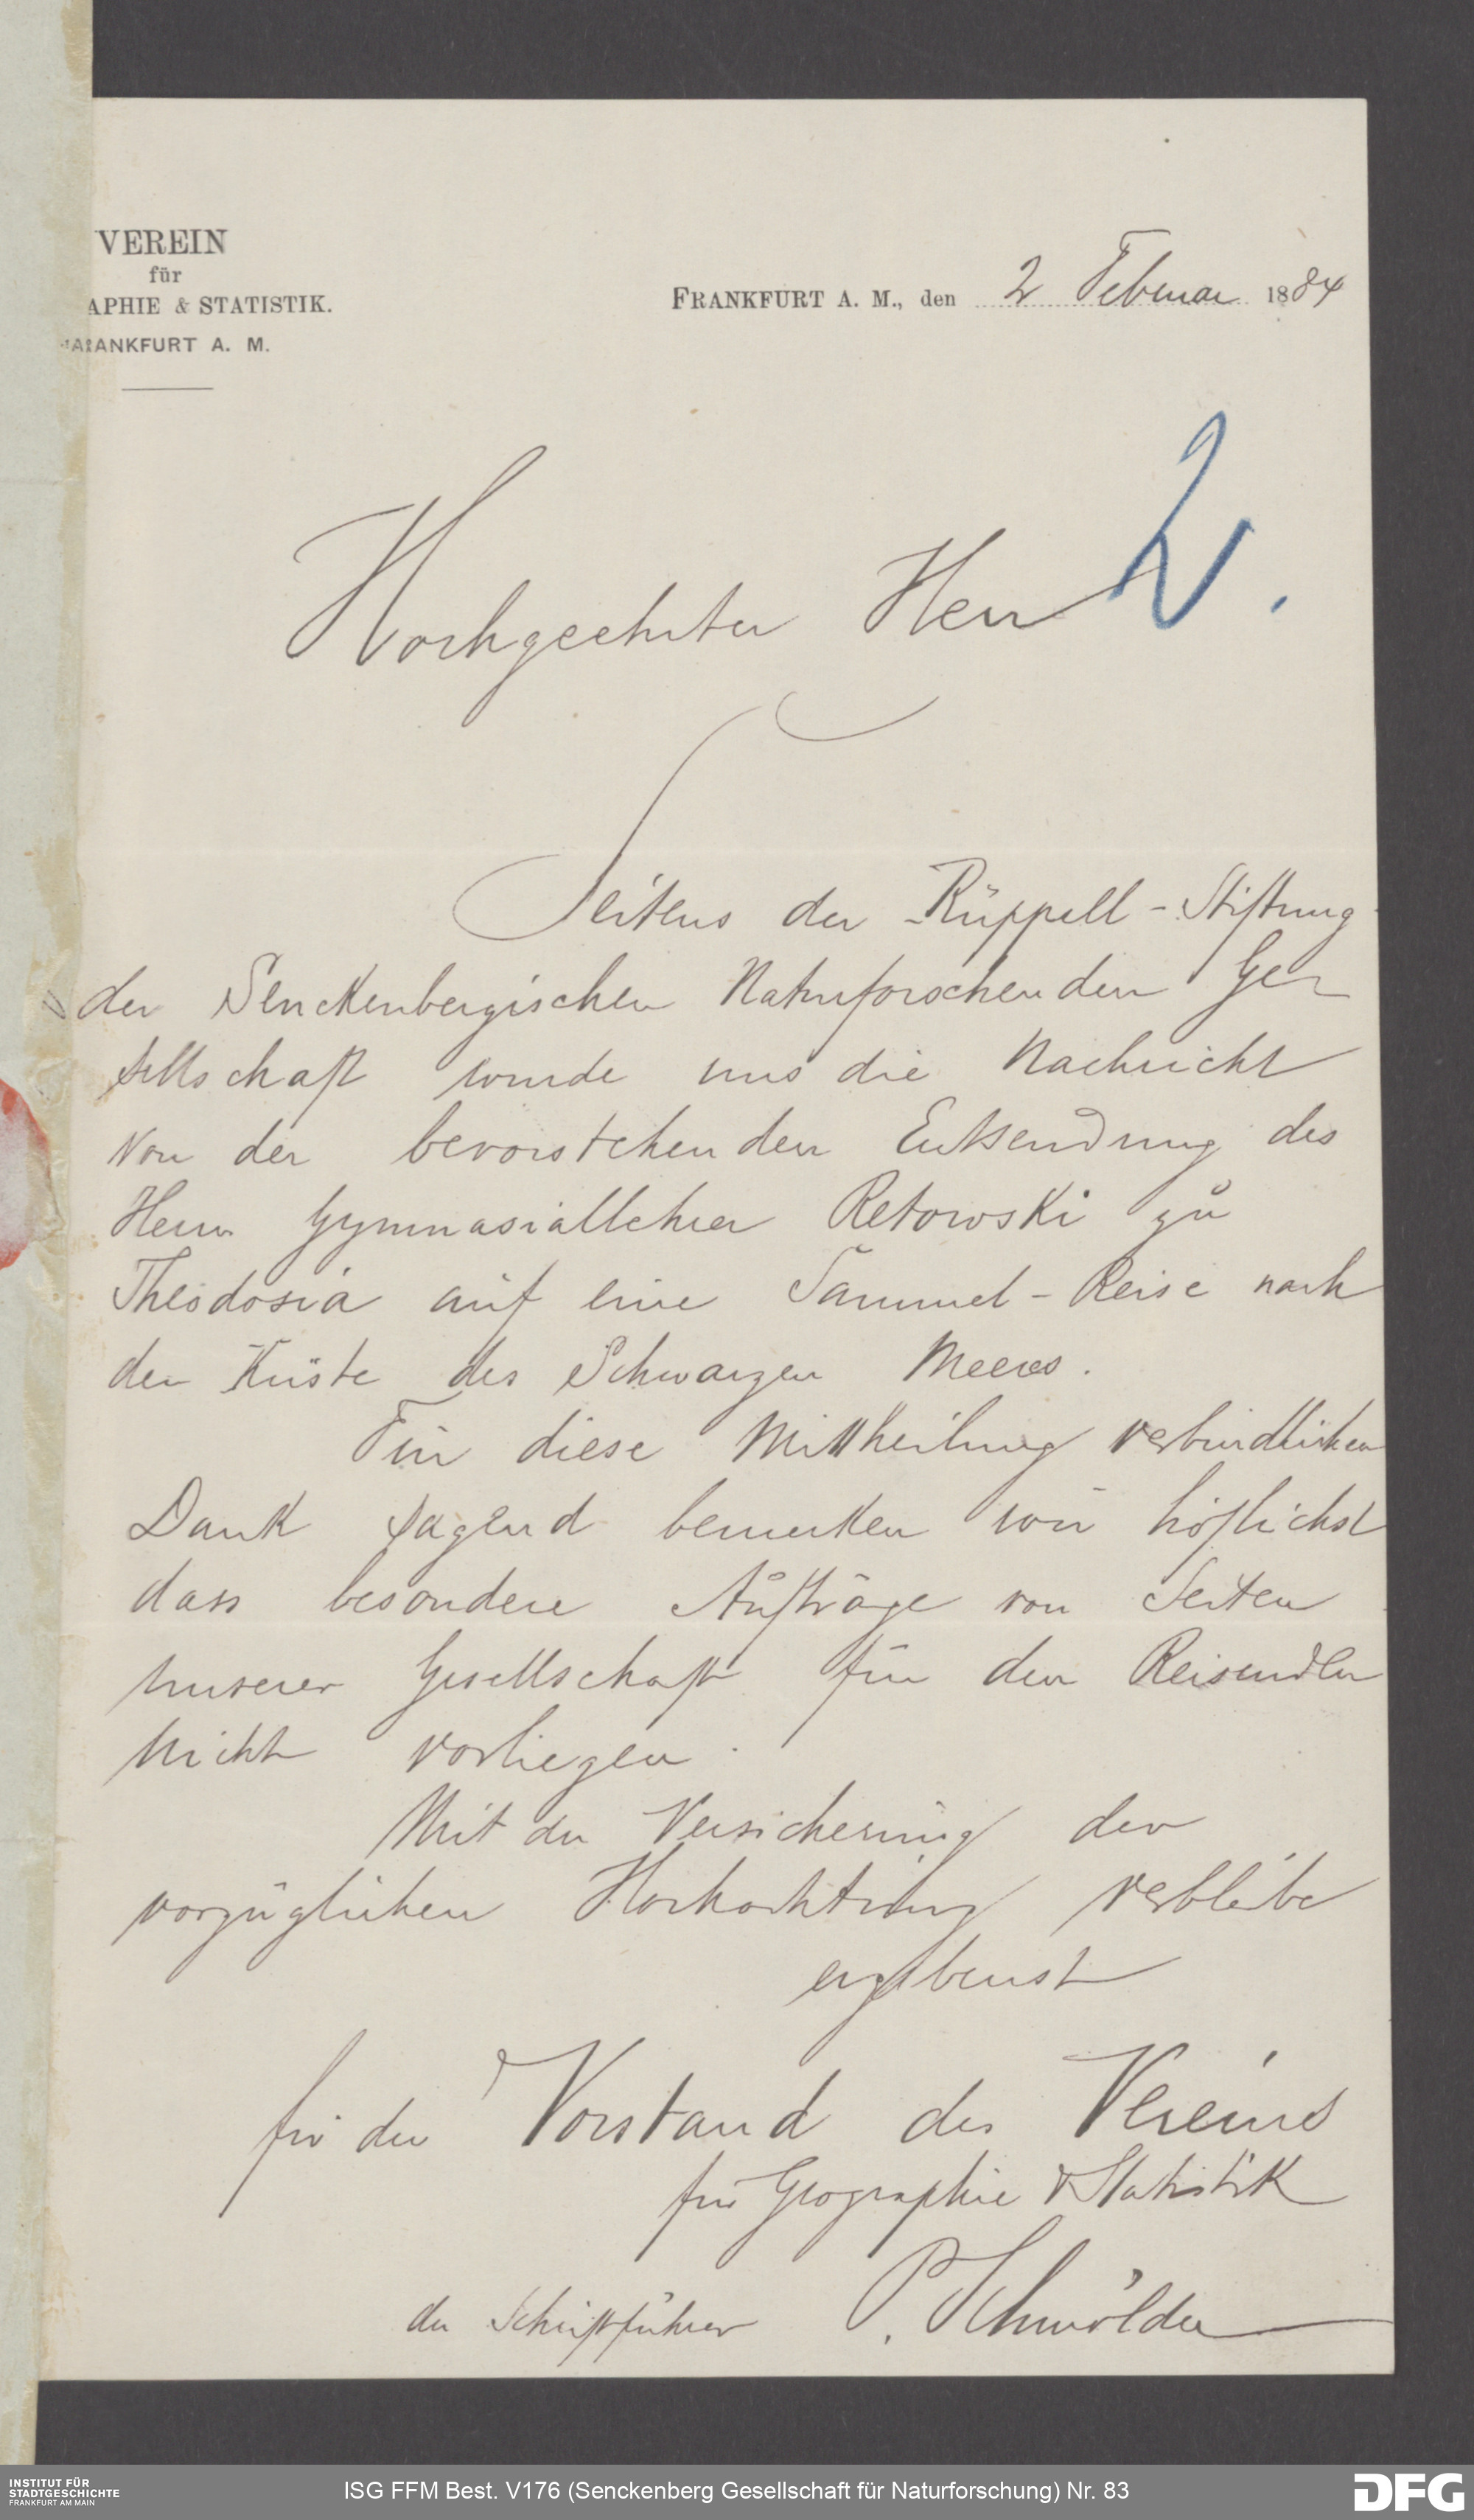 VEREIN
für
APHIE & STATISTIK.
RANKFURT A. M.
FRANKFURT A. M., den 2 Februar 1884
2.
Hochgeehrter Herr
Seitens der Rüppell-Stiftung
der Senckenbergischen Naturforschenden Ge-
sellschaft wurde uns die Nachricht
von der bevorstehenden Entsendung des
Herrn Gymnasiallehrer Retowski zu
Theodosia auf eine Sammel-Reise nach
der Küste des Schwarzen Meeres.
Für diese Mittheilung verbindlichen
Dank sagend bemerken wir höflichst
dass besondere Aufträge von Seiten
unserer Gesellschaft für den Reisenden
nicht vorliegen.
Mit der Versicherung der
vorzüglichen Hochachtung verbleibe
ergebenst
für den Vorstand des Vereins
für Geographie & Statistik
der Schriftführer P. Schwölder
INSTITUT FÜR
STADTGESCHICHTE
FRANKFURT AM MAIN
ISG FFM Best. V176 (Senckenberg Gesellschaft für Naturforschung) Nr. 83
DFG